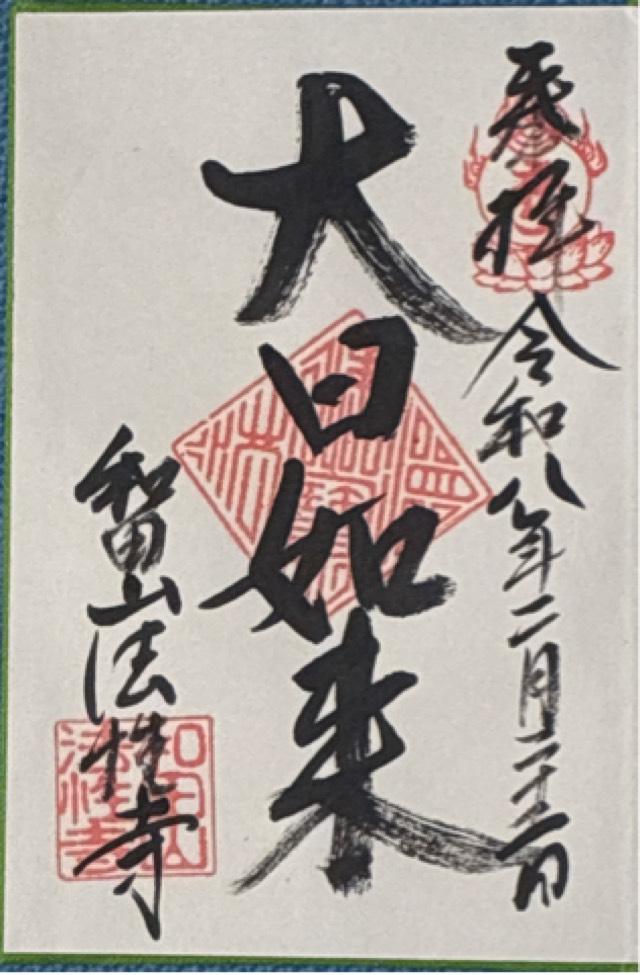 奉拝
令和八年二月二十二日
大日如来
和田山法性寺
和田山
法性寺